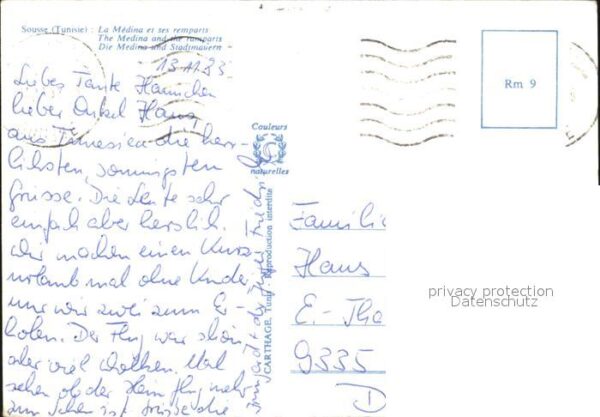 Sousse (Tunisie) : La Médina et ses remparts
The Medina and the ramparts
Die Medina und Stadtmauern
13.11.93
Liebes Tante Hannchen
lieber Onkel Hans
aus Tunesien die herz-
lichsten, sonnigsten
Grüsse. Die Leute sehr
einfach aber herzlich.
Wir machen einen Kurz
urlaub mal ohne Kinder,
nur wir zwei zum Er-
holen. Der Flug war schön
aber viel Wolken. Mal
sehen ob der Heimflug mehr
zum Sehen ist. Grüsse die
Couleurs
naturelles
CARTHAGE, Tunis - Reproduction interdite
Rm 9
Familie
Hans
E.-Tha
9335
D
privacy protection
Datenschutz